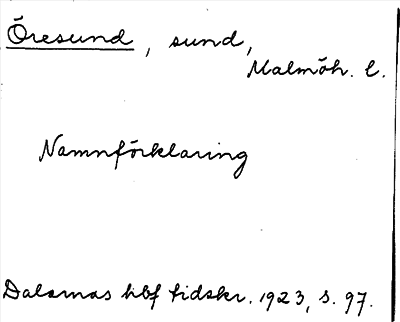 Öresund, sund,
Malmöh. l.
Namnförklaring
Dalarnas hbf tidskr. 1923, s. 97.